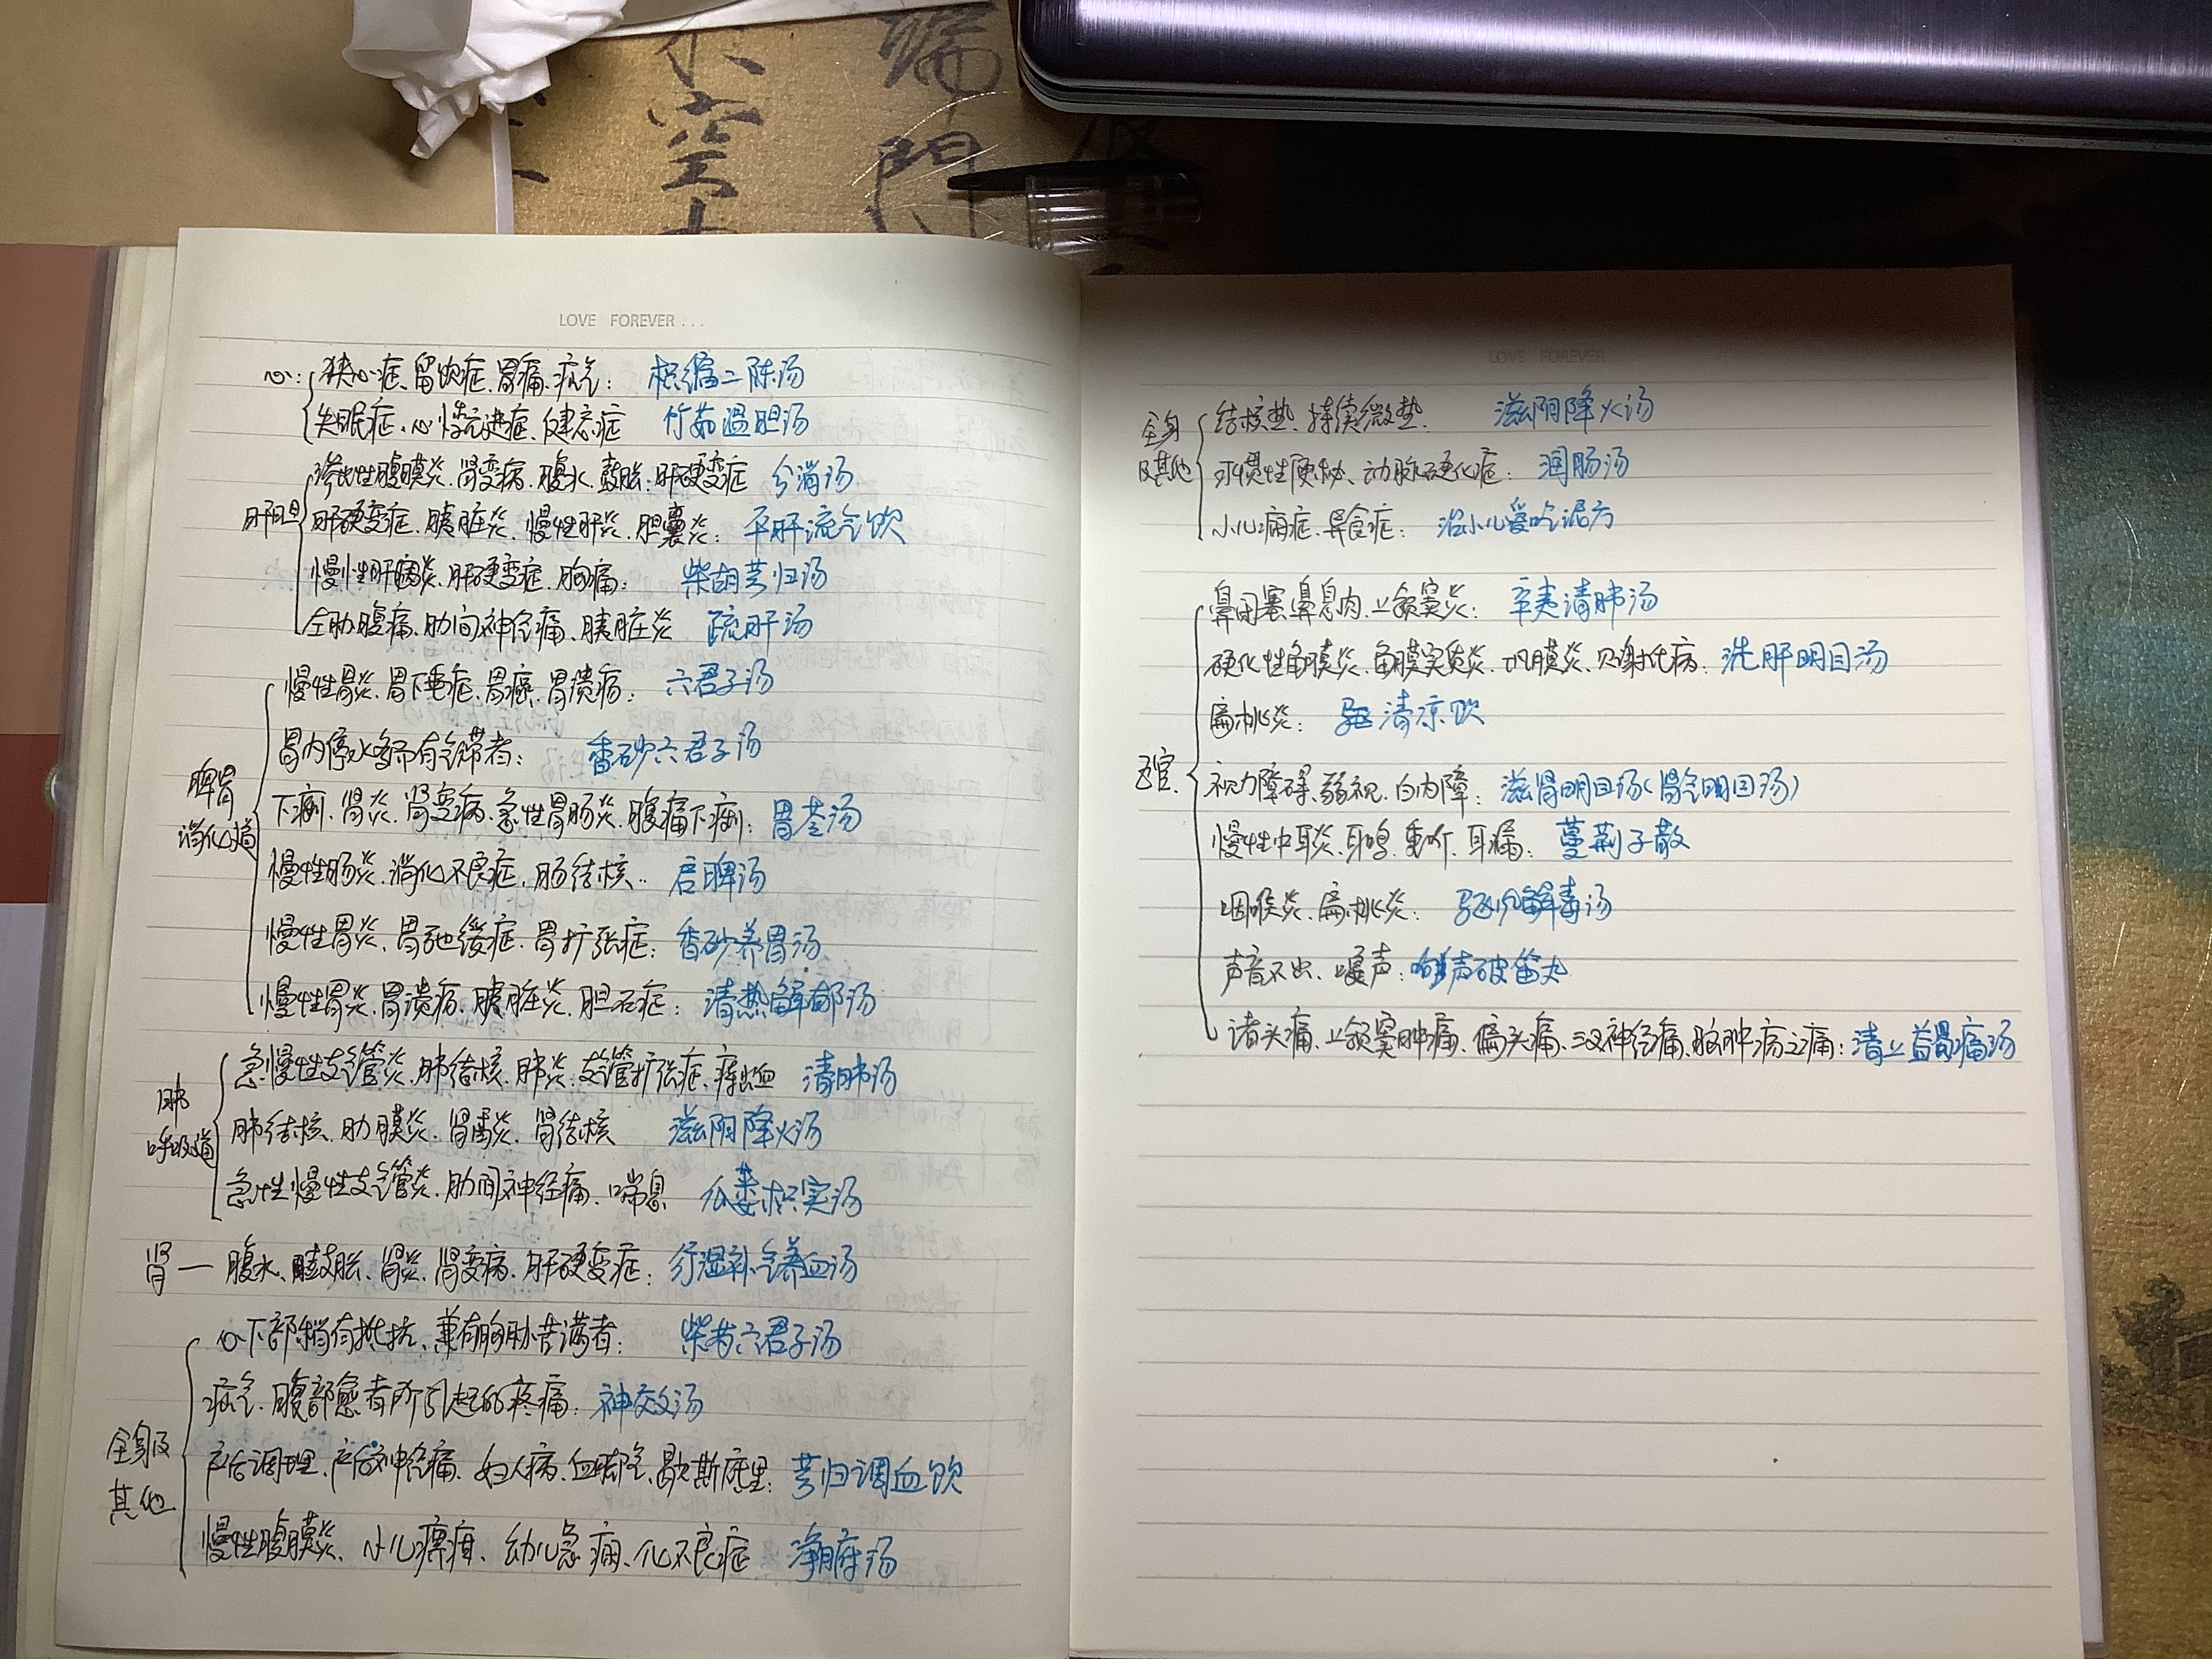 LOVE FOREVER...
心: 狭心症、留饮症、胃痛、疝气: 枳缩二陈汤
失眠症、心悸亢进症、健忘症 竹茹温胆汤
渗出性腹膜炎、肾变病、腹水、鼓胀、肝硬变症 分消汤
肝胆 肝硬变症、胰脏炎、慢性肝炎、胆囊炎: 平肝流气饮
慢性肝炎、肝硬变症、胸痛: 柴胡芎归汤
左胁腹痛、肋间神经痛、胰脏炎 疏肝汤
慢性胃炎、胃下垂症、胃癌、胃溃疡: 六君子汤
胃内停水多而有气滞者: 香砂六君子汤
脾胃
消化道
下痢、肾炎、肾变病、急性胃肠炎、腹痛下痢: 胃苓汤
慢性肠炎、消化不良症、肠结核.. 启脾汤
慢性胃炎、胃弛缓症、胃扩张症: 香砂养胃汤
慢性胃炎、胃溃疡、胰脏炎、胆石症: 清热解郁汤
急慢性支气管炎、肺结核、肺炎、支气管扩张症、瘀血 清肺汤
肺
呼吸道
肺结核、肋膜炎、肾盂炎、肾结核 滋阴降火汤
急性慢性支气管炎、肋间神经痛、喘息 瓜蒌枳实汤
肾 — 腹水、鼓胀、肾炎、肾变病、肝硬变症: 行湿补气养血汤
心下部稍有抵抗、兼有胸胁苦满者: 柴芍六君子汤
疝气、腹部愈着所引起的疼痛: 神效汤
全身及
其他
产后调理、产后神经痛、妇人病、血脚气、歇斯底里: 芎归调血饮
慢性腹膜炎、小儿瘰疽、幼儿急痫、化不良症 净腑汤
LOVE FOREVER
全身
及其他
结核热、持续微热、 滋阴降火汤
习惯性便秘、动脉硬化症: 润肠汤
小儿疳症、异食症: 治小儿爱吃泥方
鼻闭塞、鼻息肉、上颌窦炎: 辛夷清肺汤
硬化性角膜炎、角膜实质炎、巩膜炎、贝谢氏病: 洗肝明目汤
扁桃炎: 清凉饮
五官
视力障碍、弱视、白内障: 滋肾明目汤(肾气明目汤)
慢性中耳炎、耳鸣、重听、耳漏: 蔓荆子散
咽喉炎、扁桃炎: 驱风解毒汤
声音不出、嗄声: 响声破笛丸
诸头痛、上颌窦肿痛、偏头痛、三叉神经痛、脑肿疡之痛: 清上蠲痛汤